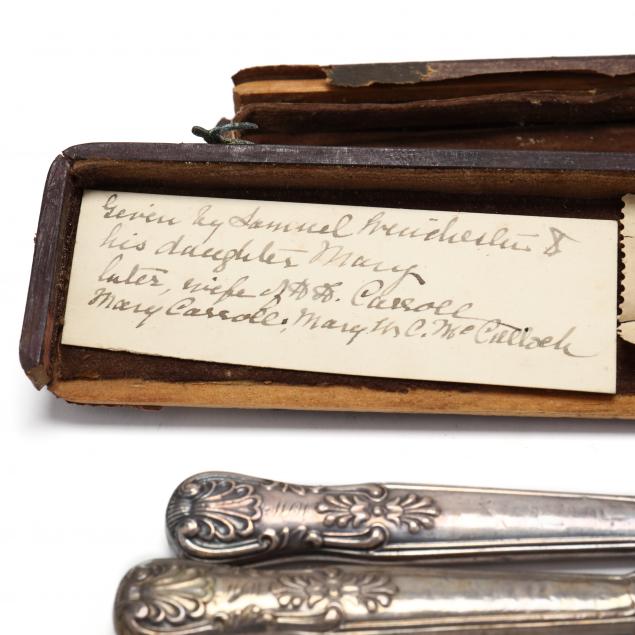 Given by Samuel Winchester &
his daughter Mary
later, wife of H. H. Carroll
Mary Carroll, Mary W. C. McCulloch